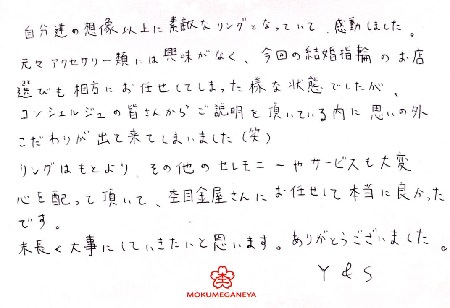 自分達の想像以上に素敵なリングとなっていて、感動しました。
元々アクセサリー類には興味がなく、今回の結婚指輪のお店
選びも相方にお任せしてしまった様な状態でしたが、
コンシェルジュの皆さんからご説明を頂いている内に思いの外
こだわりが出て来てしまいました(笑)
リングはもとより、その他のセレモニーやサービスも大変
心を配って頂いて、杢目金屋さんにお任せして本当に良かった
です。
末長く大事にしていきたいと思います。ありがとうございました。
Y & S
MOKUMEGANEYA